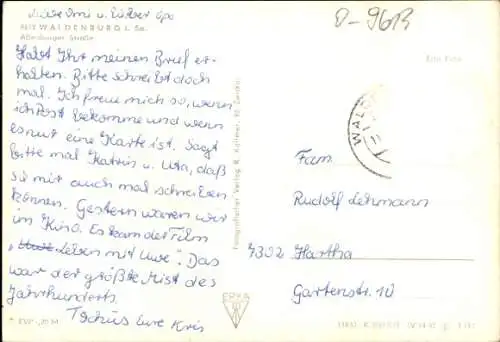 Liebe Omi u. Lieber Opa
WALDENBURG i. Sa.
Altenburger Straße
Habt Ihr meinen Brief er-
halten. Bitte schreibt doch
mal. Ich freue mich so, wenn
ich Post bekomme und wenn
es nur eine Karte ist. Sagt
bitte mal Katrin u. Uta, daß
sie mir auch mal schreiben
können. Gestern waren wir
im Kino. Es kam der Film
„Leben mit Uwe". Das
war der größte Mist des
Jahrhunderts.
Tschüs Eure Kris
Echt Foto
WALD
Fam.
Rudolf Lehmann
7302 Hartha
Gartenstr. 10